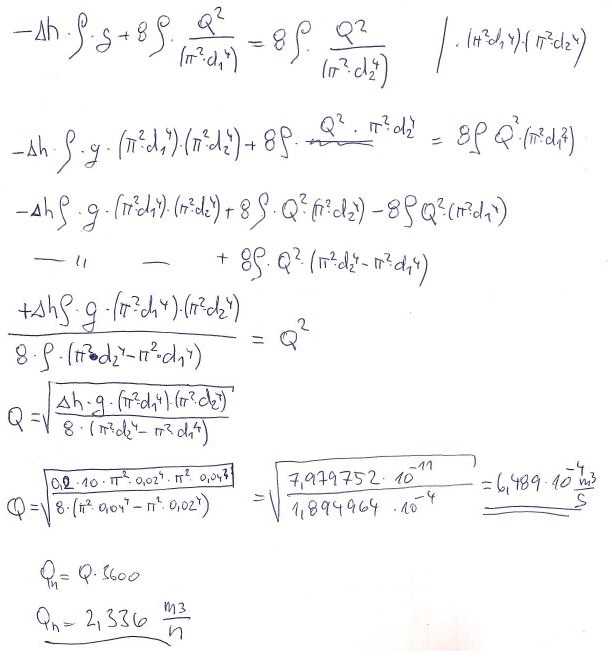 -Δh·ρ·g+8ρ· Q²/(π²·d₁⁴) = 8ρ· Q²/(π²·d₂⁴) /·(π²d₁⁴)·(π²d₂⁴)
-Δh·ρ·g·(π²·d₁⁴)·(π²·d₂⁴)+8ρ· Q²·π²d₂⁴ = 8ρQ²·(π²d₁⁴)
-Δhρ·g·(π²d₁⁴)·(π²d₂⁴)+8ρ·Q²·(π²d₂⁴)-8ρQ²·(π²d₁⁴)
— 〃 — + 8ρ·Q²·(π²d₂⁴-π²d₁⁴)
+Δhρ·g·(π²·d₁⁴)·(π²·d₂⁴) / 8·ρ·(π²·d₂⁴-π²·d₁⁴) = Q²
Q=√(Δh·g·(π²·d₁⁴)·(π²·d₂⁴) / 8·(π²d₂⁴-π²d₁⁴))
Q=√(0,2·10·π²·0,02⁴·π²·0,04⁴ / 8·(π²·0,04⁴-π²·0,02⁴)) =√(7,979752·10⁻¹¹ / 1,894964·10⁻⁴) =6,489·10⁻⁴ m³/s
Qₕ=Q·3600
Qₕ=2,336 m³/h